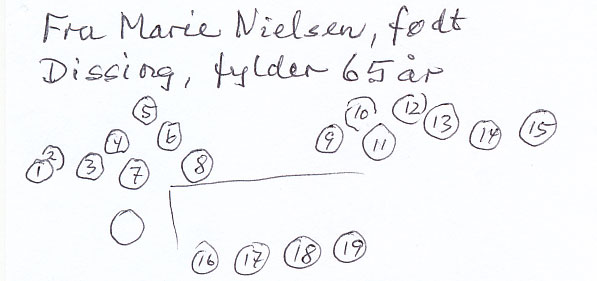 Fra Marie Nielsen, født
Dissing, fylder 65 år
5
10 12
2 4 6 9 11 13 14 15
1 3 7 8
16 17 18 19